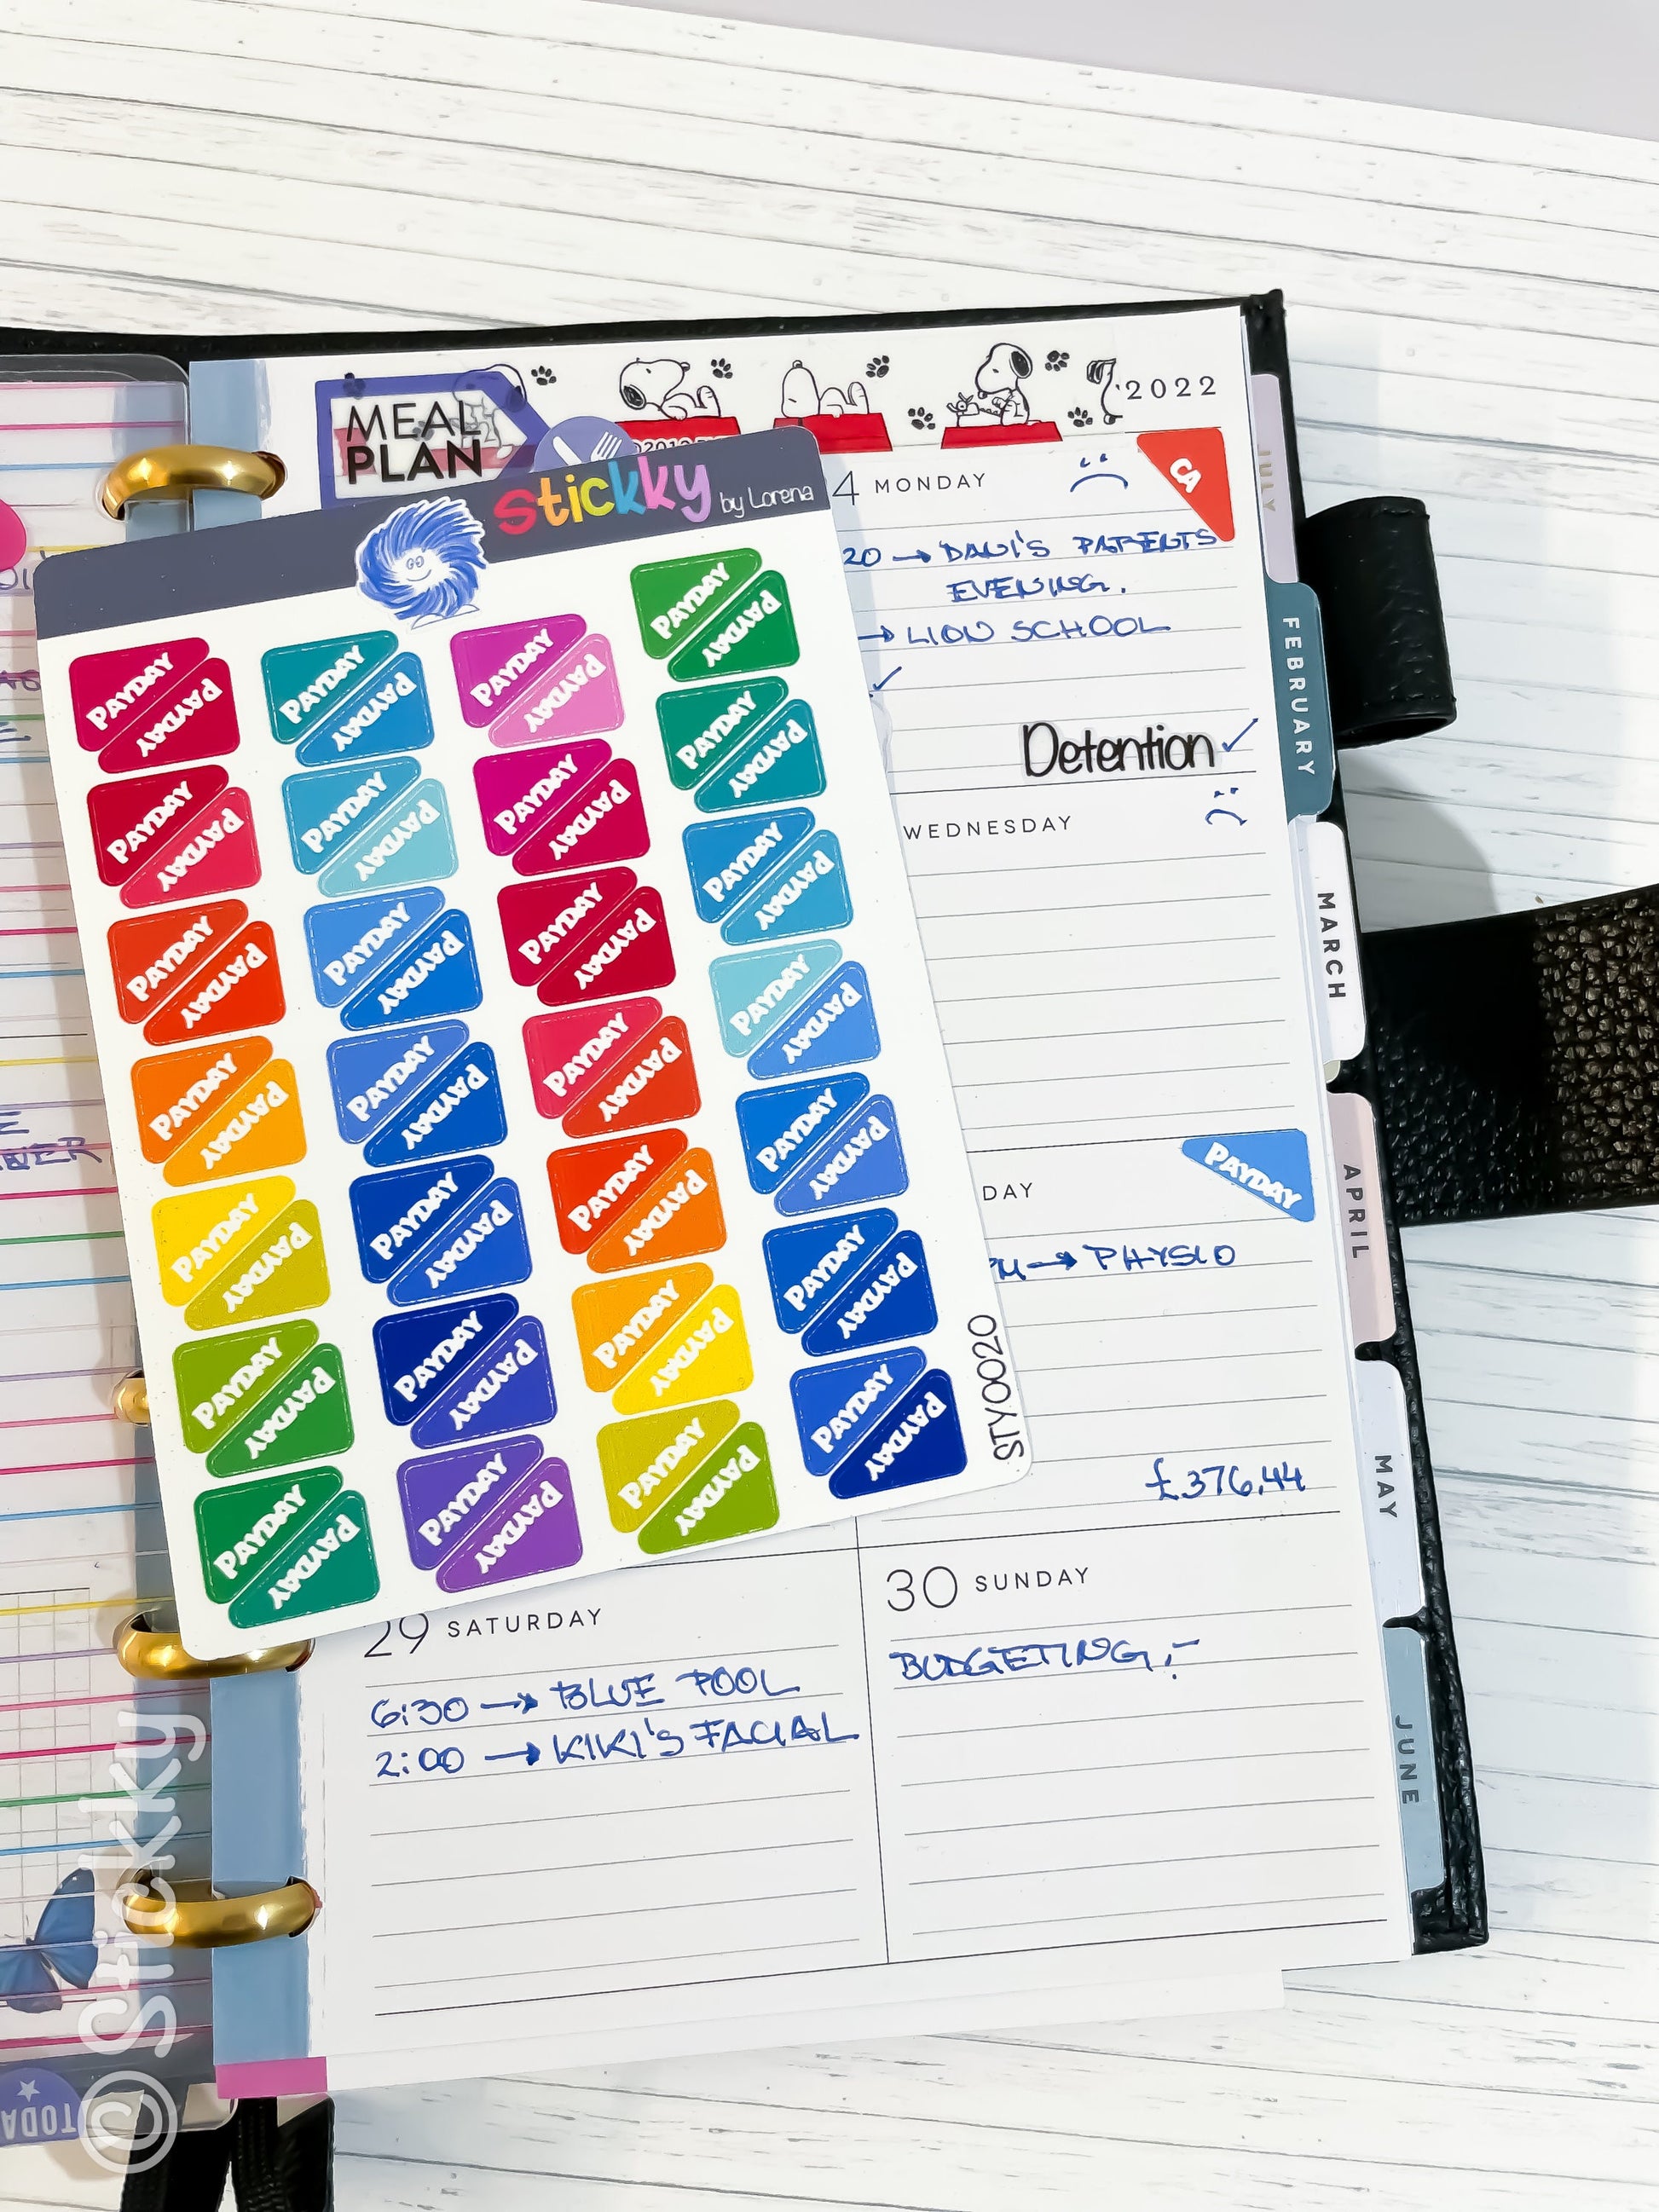 MEAL
PLAN
'2022
stickky by Lorena
4 MONDAY
CA
20 → DAVI'S PARENTS
EVENING.
→ LION SCHOOL
Detention ✓
WEDNESDAY
DAY
PAYDAY
→ PHYSIO
£376.44
29 SATURDAY
6:30 → BLUE POOL
2:00 → KIKI'S FACIAL
30 SUNDAY
BUDGETING
PAYDAY
PAYDAY
PAYDAY
PAYDAY
PAYDAY
PAYDAY
PAYDAY
PAYDAY
PAYDAY
PAYDAY
PAYDAY
PAYDAY
PAYDAY
PAYDAY
PAYDAY
PAYDAY
PAYDAY
PAYDAY
PAYDAY
PAYDAY
PAYDAY
PAYDAY
PAYDAY
PAYDAY
PAYDAY
PAYDAY
PAYDAY
PAYDAY
PAYDAY
PAYDAY
PAYDAY
PAYDAY
PAYDAY
PAYDAY
PAYDAY
PAYDAY
PAYDAY
PAYDAY
PAYDAY
PAYDAY
PAYDAY
PAYDAY
PAYDAY
PAYDAY
PAYDAY
PAYDAY
PAYDAY
PAYDAY
PAYDAY
PAYDAY
PAYDAY
PAYDAY
PAYDAY
PAYDAY
PAYDAY
PAYDAY
STY0020
JULY
FEBRUARY
MARCH
APRIL
MAY
JUNE
TODA
© Stickky